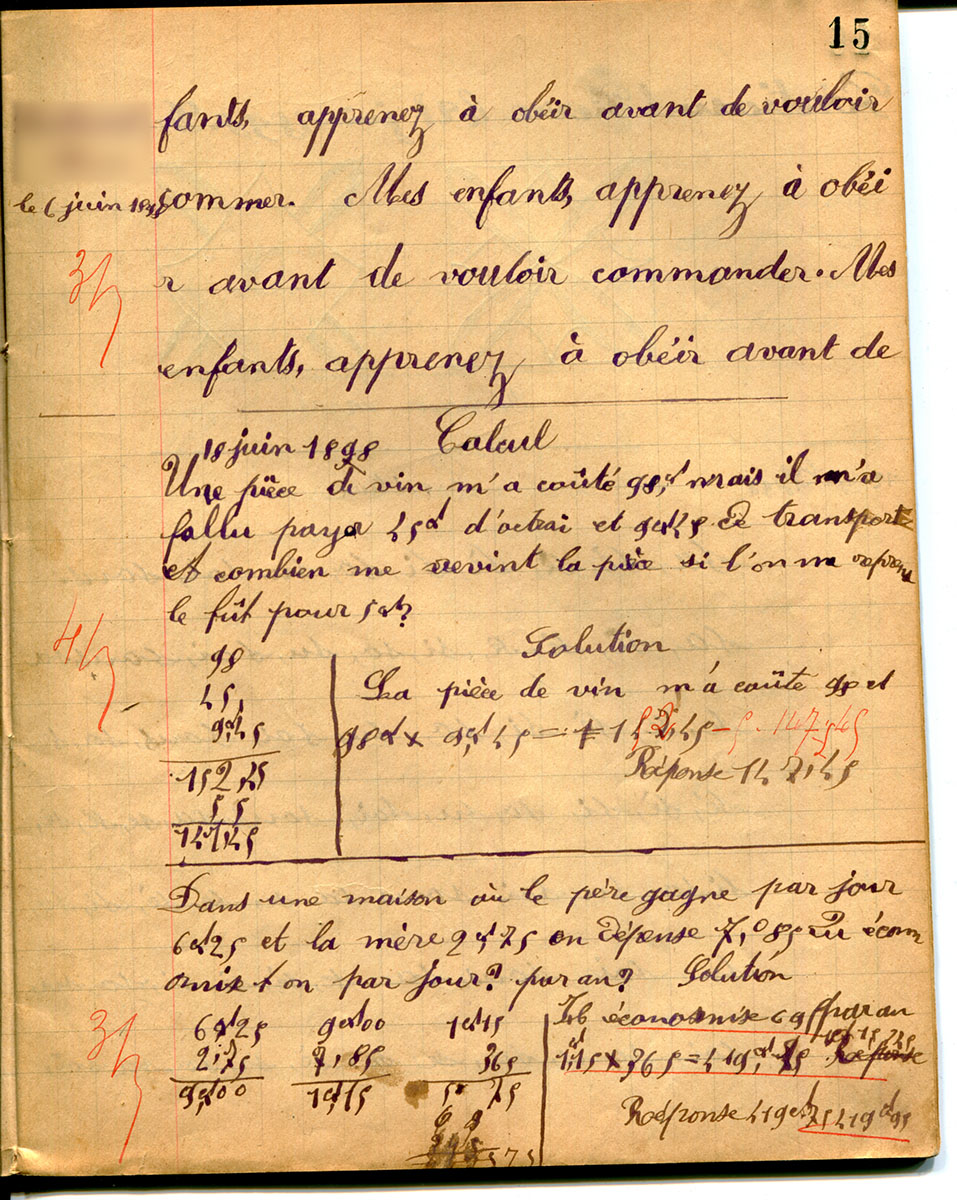 15
fants, apprenez à obéir avant de vouloir
le 6 juin 1898
commer. Mes enfants, apprenez à obéi
r avant de vouloir commander. Mes
enfants, apprenez à obéir avant de
18 juin 1898 Calcul
Une pièce de vin m'a coûté 98f, mais il m'a
fallu payer 45f d'octroi et 9f45 de transport
et combien me revint la pièce si l'on me reprend
le fût pour 5f?
Solution
98
45,
9f,45
152,45
5
147,45
La pièce de vin m'a coûté 98 et
98f x 9f,45 = 152,45 - 5 = 147f45
Réponse 147,45
Dans une maison où le père gagne par jour
6f25 et la mère 2f75 on dépense 7,85
omise t on par jour? par an? Solution
6f25 9f00 1f15
2f75 7,85 365
9f00 1f15 5 75
6 9
575
économise par an
1f15 x 365 = 419f,75 Réponse
Réponse 419f75